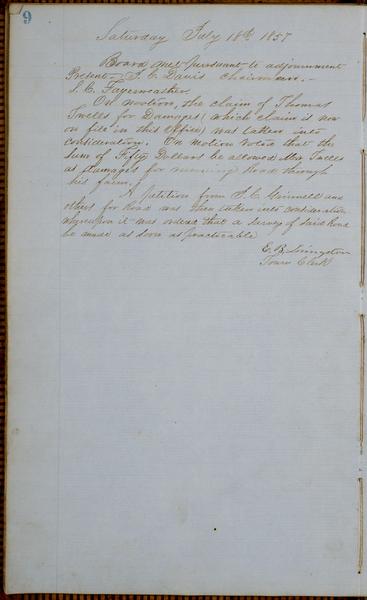 9
Saturday July 18th 1857
Board met pursuant to adjournment
Present S. C. Davis Chairman.
S. C. Fayerweather
On motion, the claim of Thomas
Swells for Damages (which claim is now
on file in this office) was taken into
consideration. On motion voted that the
Sum of Fifty Dollars be allowed Mr Swells
as Damages for running Road through
his farm.
A petition from S. C. Grinnell and
others for Road was then taken into consideration
whereupon it was ordered that a Survey of Said Road
be made as soon as practicable
E. B. Livingston
Town Clerk